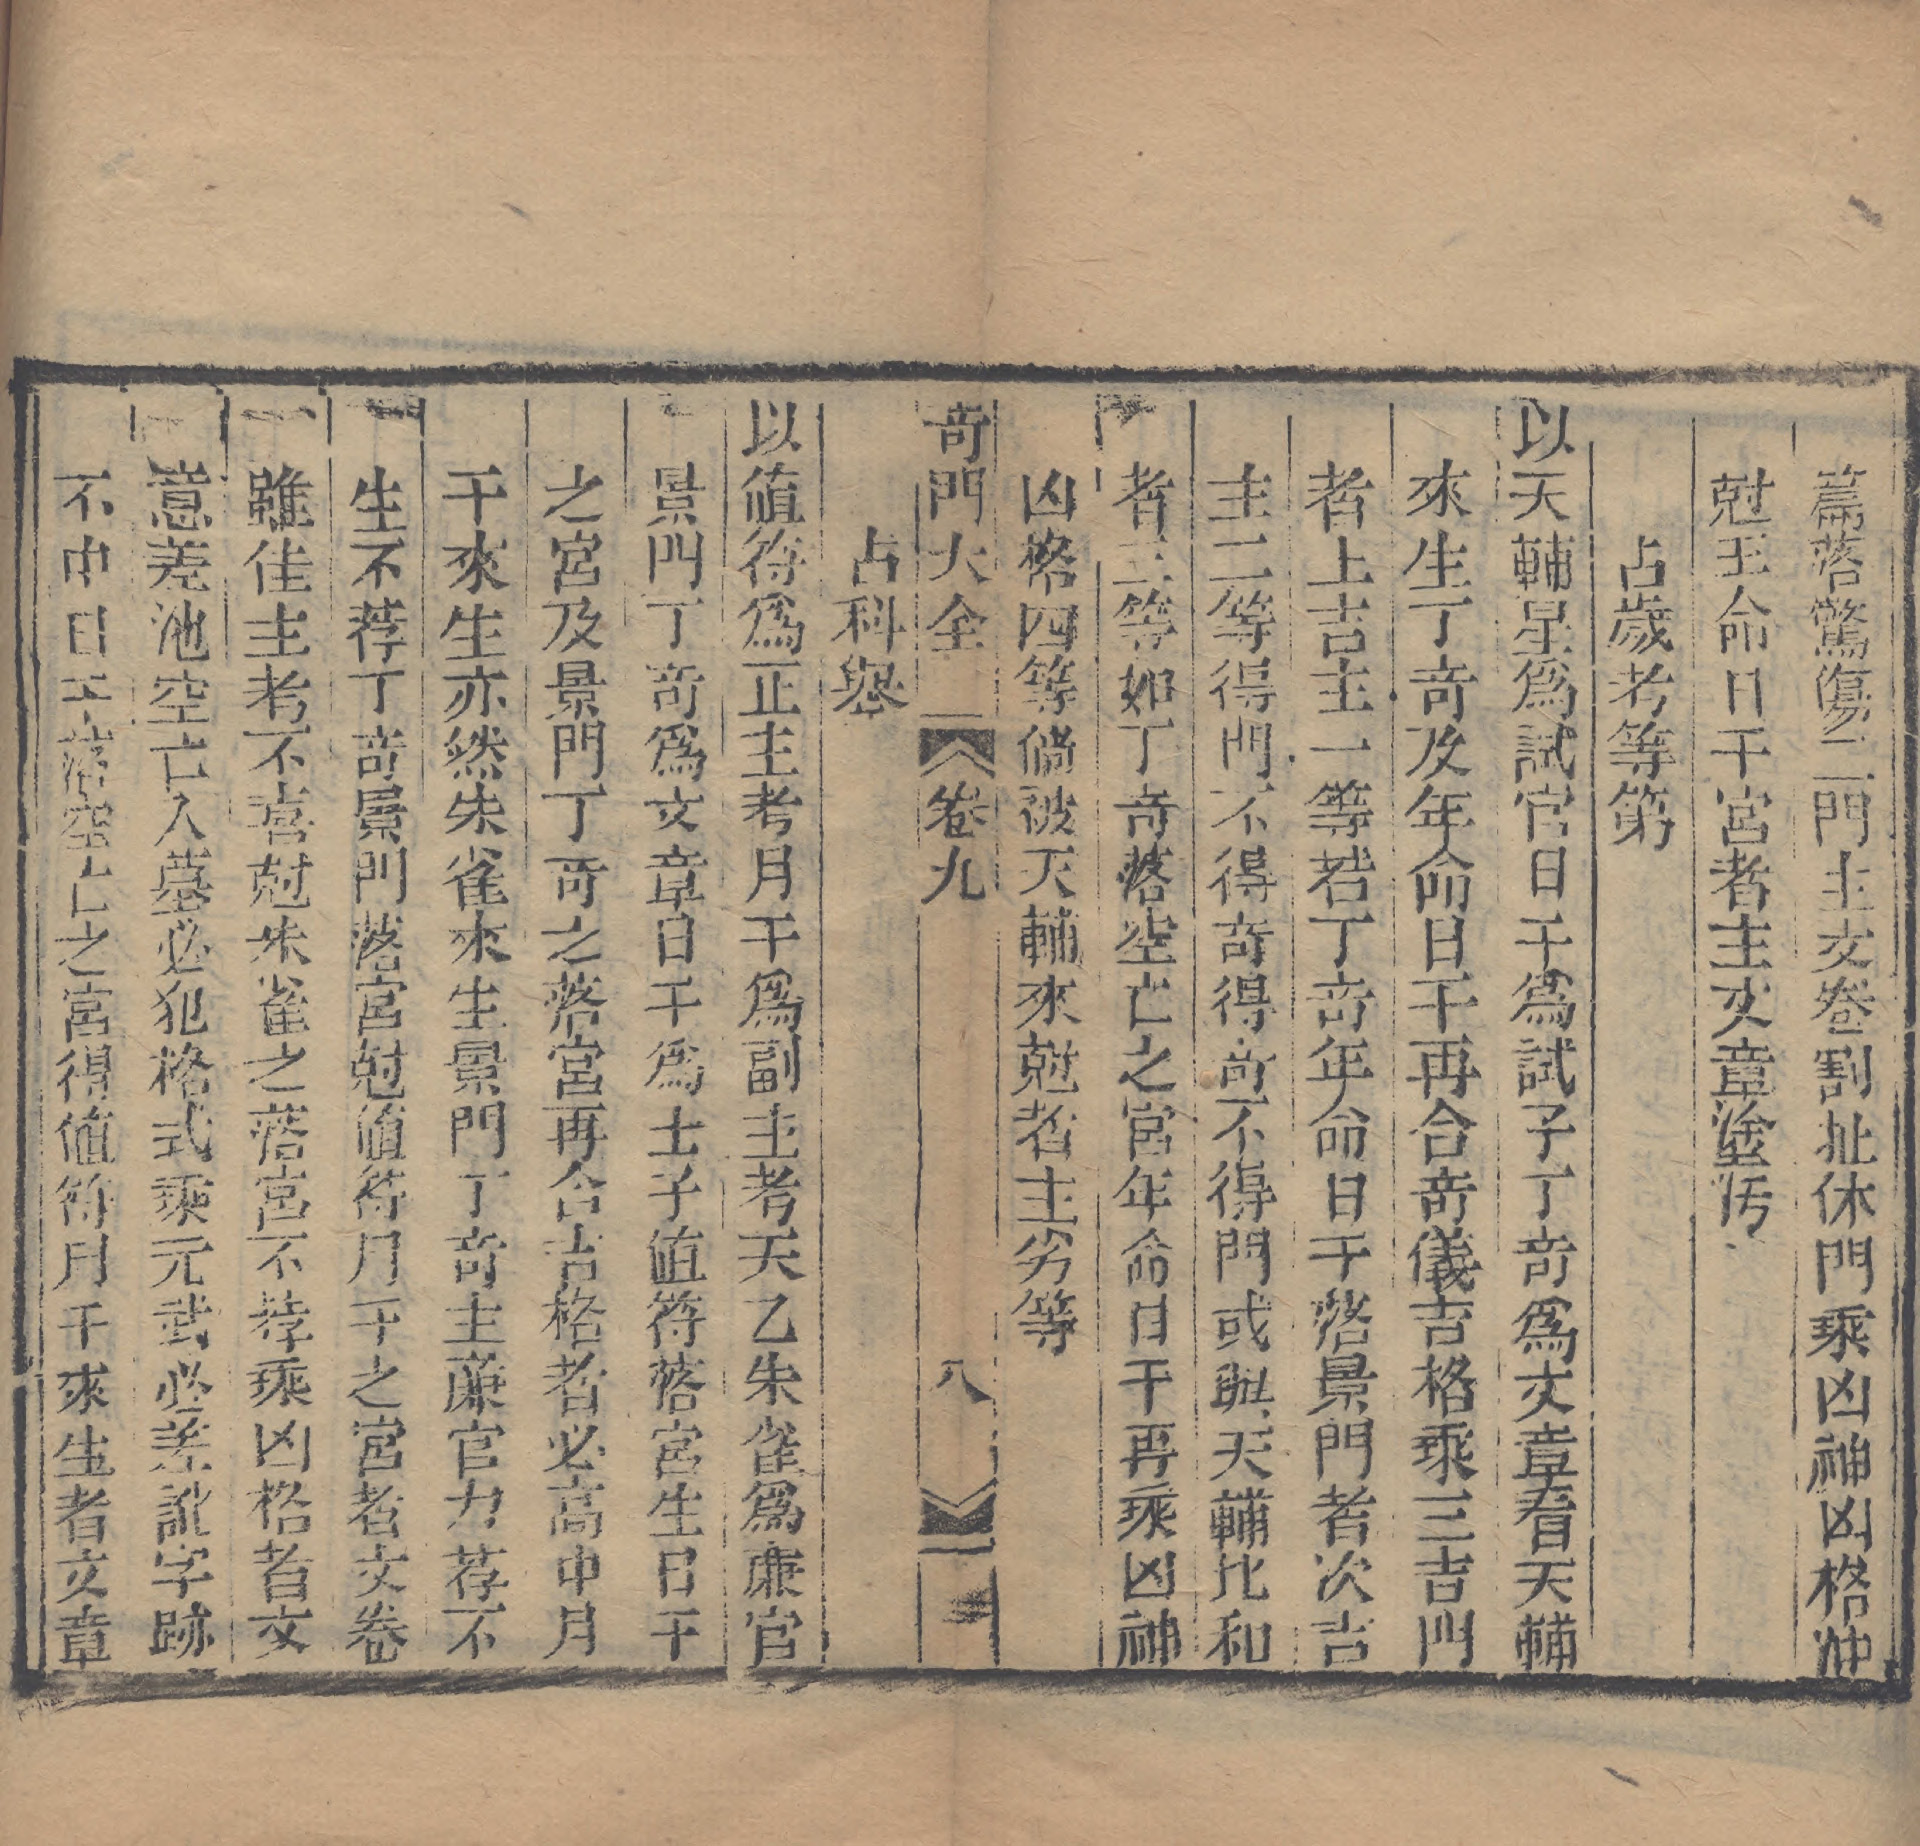 篇落驚傷二門主文卷割扯休門乘凶神凶格冲
尅王命日干宮者主文章塗污
占歲考等第
以天輔星爲試官日干爲試子丁奇爲文章看天輔
來生丁奇及年命日干再合奇儀吉格乘三吉門
者上吉主一等若丁奇年命日干落景門者次吉
主二等得門不得奇得奇不得門或與天輔比和
者三等如丁奇落空亡之宮年命日干再乘凶神
凶格四等備被天輔來尅者主劣等
奇門大全
卷九
八
占科舉
以値符爲正主考月干爲副主考天乙朱雀爲廉官
景門丁奇爲文章日干爲士子値符落宮生日干
之宮及景門丁奇之落宮再合吉格者必高中月
干來生亦然朱雀來生景門丁奇主廉官力荐不
生不荐丁奇景門落宮尅値符月干之宮者文卷
雖佳主考不喜尅朱雀之落宮不荐乘凶格者文
意差池空亡入墓必犯格式乘元武必差訛字跡
不中日干落空亡之宮得値符月干來生者文章